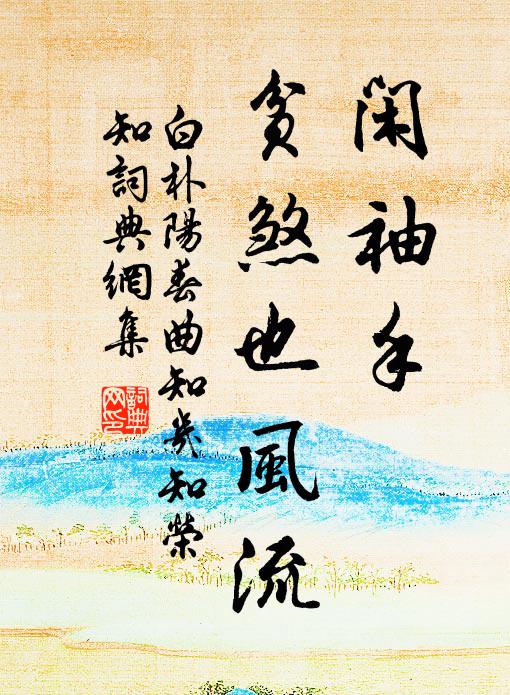 閑袖手
貧煞也風流
白朴陽春曲知幾知榮
知詞典網集
詞典網印